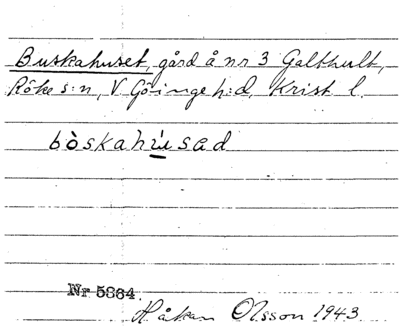 Buskahuset, gård å nr 3 Galthult,
Röke s:n, V. Göinge h:d, Krist. l.
bòskahúsad
Nr 5384.
Håkan Olsson 1943